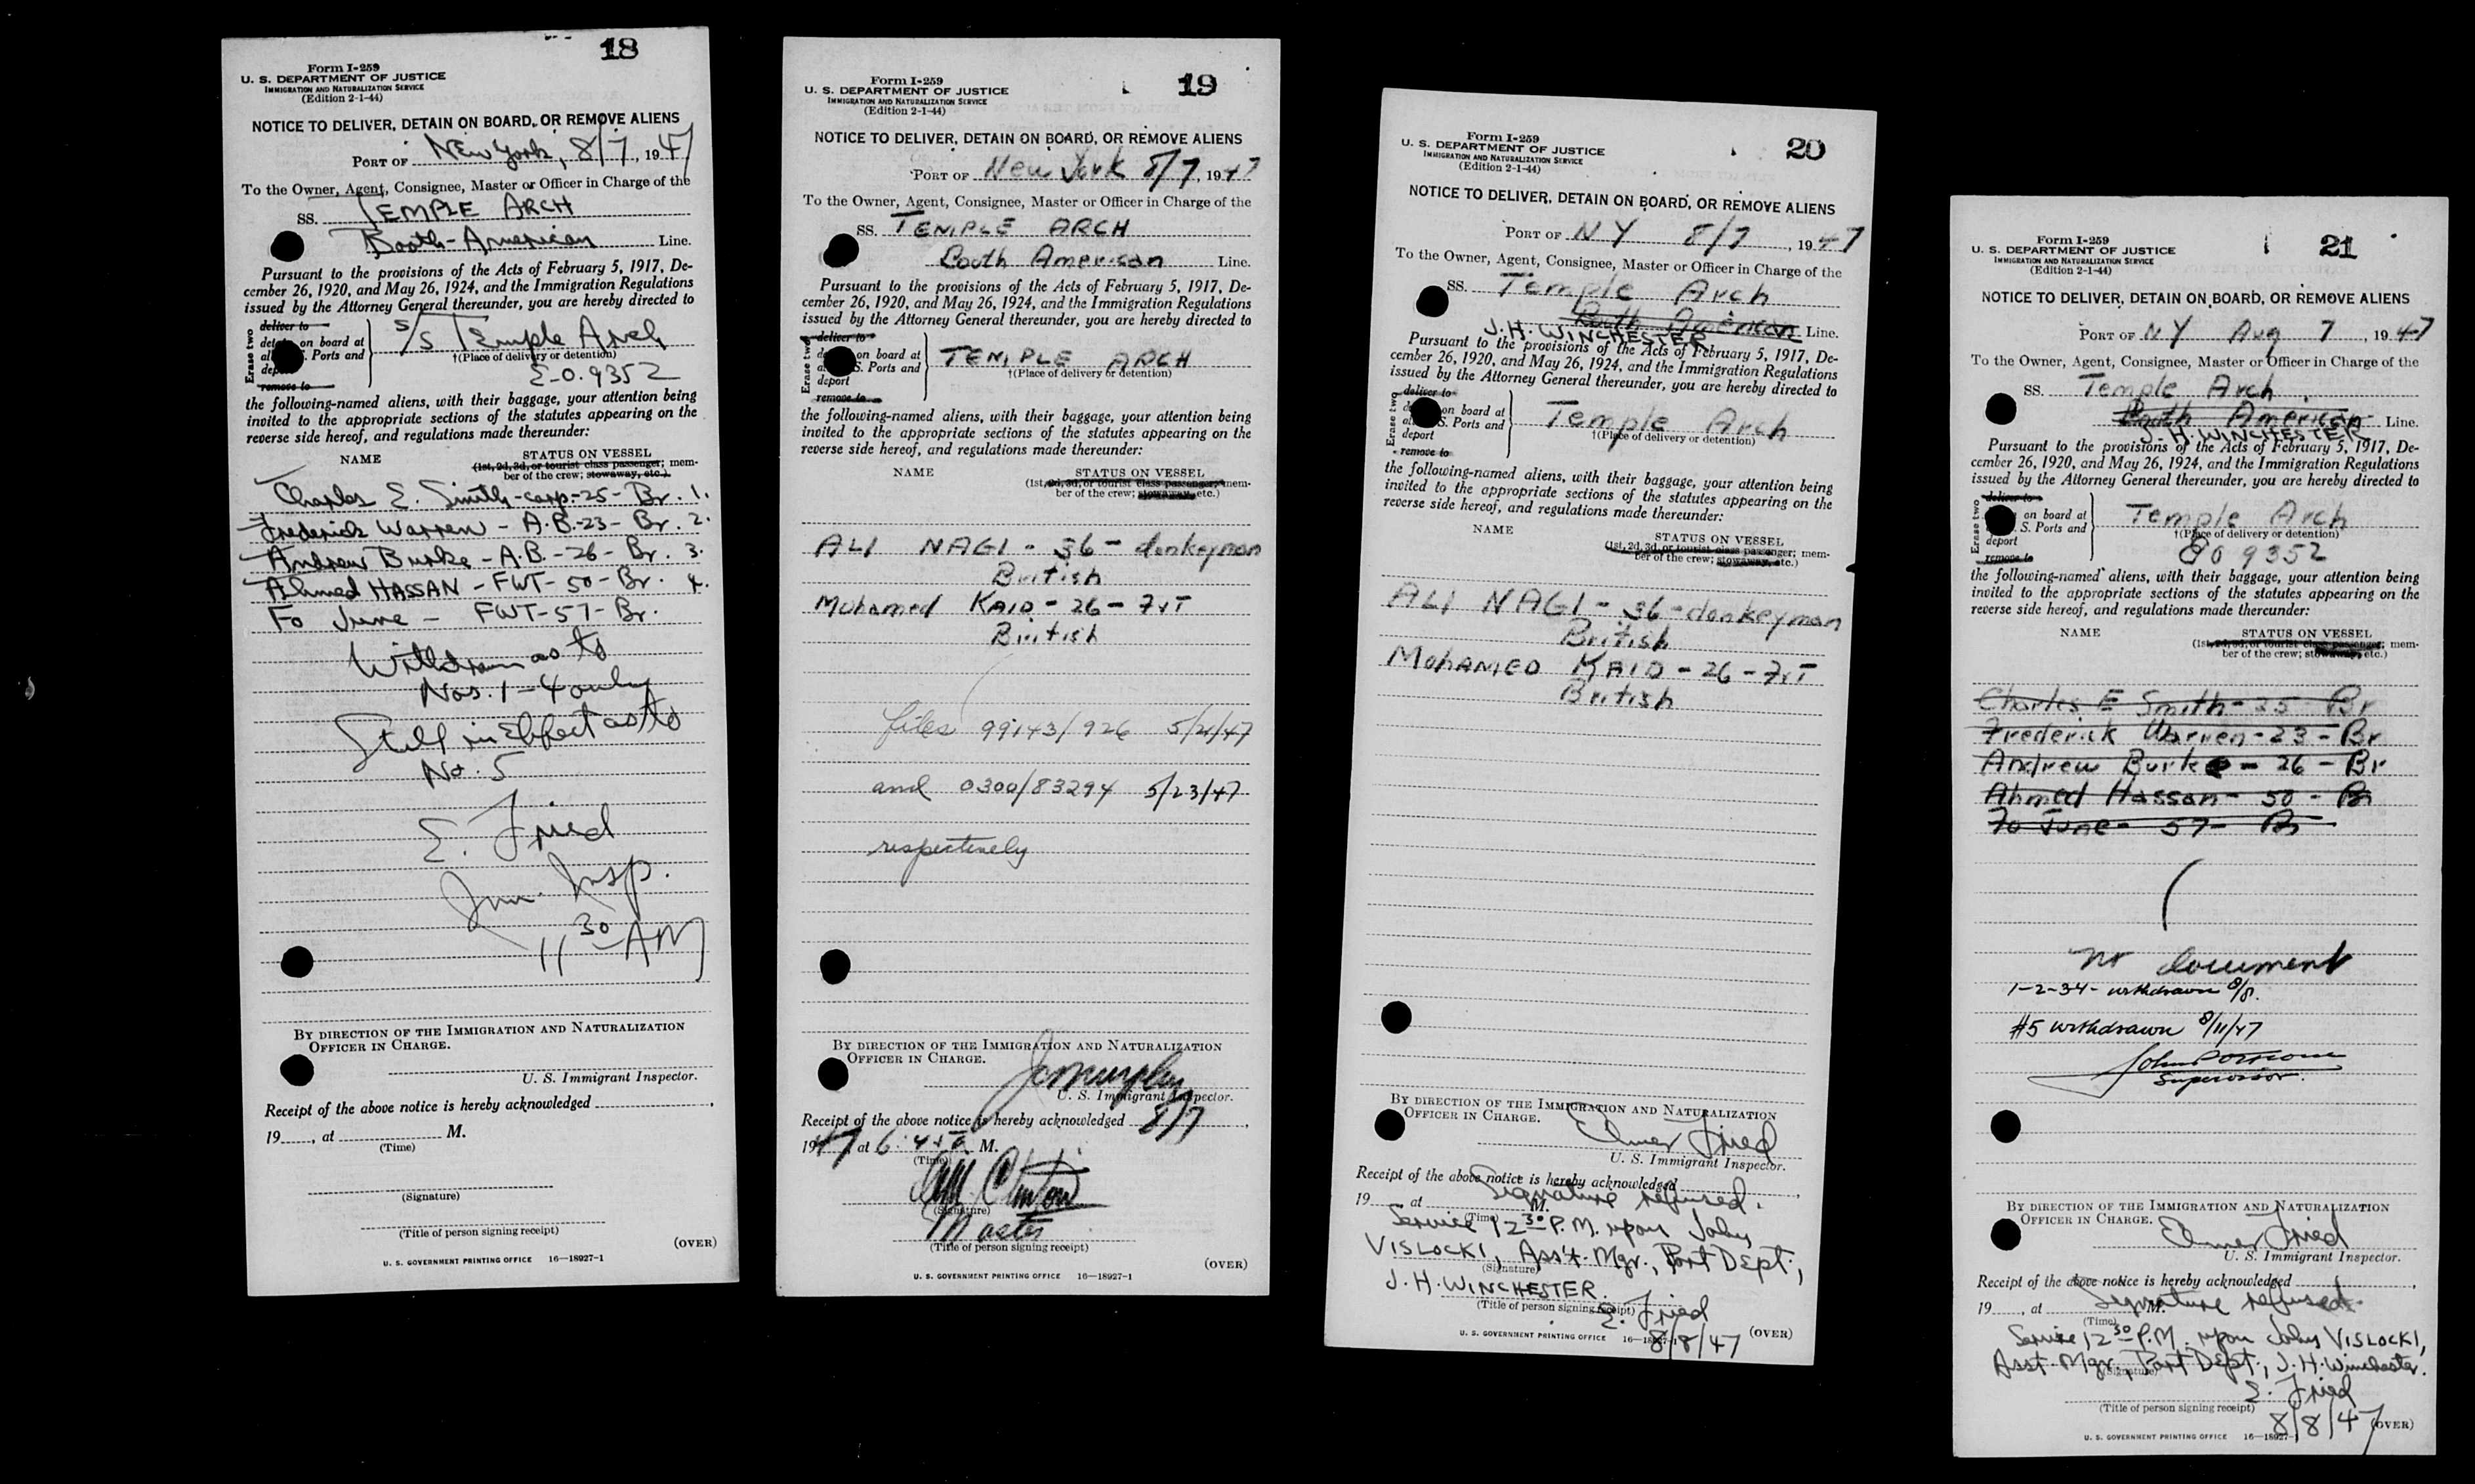 18
Form I-259
U. S. DEPARTMENT OF JUSTICE
IMMIGRATION AND NATURALIZATION SERVICE
(Edition 2-1-44)
NOTICE TO DELIVER, DETAIN ON BOARD, OR REMOVE ALIENS
PORT OF New York, 8/7, 1947
To the Owner, Agent, Consignee, Master or Officer in Charge of the
SS. TEMPLE ARCH
Booth-American Line.
Pursuant to the provisions of the Acts of February 5, 1917, De-
cember 26, 1920, and May 26, 1924, and the Immigration Regulations
issued by the Attorney General thereunder, you are hereby directed to
Erase two
deliver to
on board at
Ports and
remove to
S/S Temple Arch
†(Place of delivery or detention)
E-0.9352
the following-named aliens, with their baggage, your attention being
invited to the appropriate sections of the statutes appearing on the
reverse side hereof, and regulations made thereunder:
NAME STATUS ON VESSEL
(1st, 2d, 3d, or tourist class passenger; mem-
ber of the crew; stowaway, etc.)
Charles E. Smith-carp-25-Br. 1.
Frederick Warren - A.B.-23- Br. 2.
Andrew Burke - A.B.-26- Br. 3.
Ahmed HASSAN - FWT-50-Br. 4.
Fo June - FWT-57-Br.
Withdrawn as to
Nos. 1-4 only
Still in Effect as to
No. 5
E. Fried
Imm. Insp.
11 30 AM
BY DIRECTION OF THE IMMIGRATION AND NATURALIZATION
OFFICER IN CHARGE.
U. S. Immigrant Inspector.
Receipt of the above notice is hereby acknowledged
19, at M.
(Time)
(Signature)
(Title of person signing receipt)
(OVER)
U. S. GOVERNMENT PRINTING OFFICE 16—18927-1
19
Form I-259
U. S. DEPARTMENT OF JUSTICE
IMMIGRATION AND NATURALIZATION SERVICE
(Edition 2-1-44)
NOTICE TO DELIVER, DETAIN ON BOARD, OR REMOVE ALIENS
PORT OF New York 8/7, 1947
To the Owner, Agent, Consignee, Master or Officer in Charge of the
SS. TEMPLE ARCH
Booth American Line.
Pursuant to the provisions of the Acts of February 5, 1917, De-
cember 26, 1920, and May 26, 1924, and the Immigration Regulations
issued by the Attorney General thereunder, you are hereby directed to
Erase two
deliver to
on board at
S. Ports and
deport
remove to
TEMPLE ARCH
†(Place of delivery or detention)
the following-named aliens, with their baggage, your attention being
invited to the appropriate sections of the statutes appearing on the
reverse side hereof, and regulations made thereunder:
NAME STATUS ON VESSEL
(1st, 2d, 3d, or tourist class passenger; mem-
ber of the crew; stowaway, etc.)
ALI NAGI - 36 - donkeyman
British
Mohamed KAID - 26 - FrT
British
files 99143/926 5/21/47
and 0300/83294 5/23/47
respectively
BY DIRECTION OF THE IMMIGRATION AND NATURALIZATION
OFFICER IN CHARGE.
U. S. Immigrant Inspector.
Receipt of the above notice is hereby acknowledged 8/7,
1947, at M.
(Time)
Clinton
(Signature)
Master
(Title of person signing receipt)
(OVER)
U. S. GOVERNMENT PRINTING OFFICE 16—18927-1
20
Form I-259
U. S. DEPARTMENT OF JUSTICE
IMMIGRATION AND NATURALIZATION SERVICE
(Edition 2-1-44)
NOTICE TO DELIVER, DETAIN ON BOARD, OR REMOVE ALIENS
PORT OF NY 8/7, 1947
To the Owner, Agent, Consignee, Master or Officer in Charge of the
SS. Temple Arch
Booth American Line.
J. H. WINCHESTER
Pursuant to the provisions of the Acts of February 5, 1917, De-
cember 26, 1920, and May 26, 1924, and the Immigration Regulations
issued by the Attorney General thereunder, you are hereby directed to
Erase two
deliver to
on board at
S. Ports and
deport
remove to
Temple Arch
†(Place of delivery or detention)
the following-named aliens, with their baggage, your attention being
invited to the appropriate sections of the statutes appearing on the
reverse side hereof, and regulations made thereunder:
NAME STATUS ON VESSEL
(1st, 2d, 3d, or tourist class passenger; mem-
ber of the crew; stowaway, etc.)
ALI NAGI - 36 - donkeyman
British
MOHAMED KAID - 26 - FrT
British
BY DIRECTION OF THE IMMIGRATION AND NATURALIZATION
OFFICER IN CHARGE.
Elmer Fried
U. S. Immigrant Inspector.
Receipt of the above notice is hereby acknowledged
Signature refused.
19, at M.
(Time)
Service 12 30 P.M. upon John
VISLOCKI, Ass't. Mgr., Port Dept.,
(Signature)
J. H. WINCHESTER.
(Title of person signing receipt)
E. Fried
8/8/47
(OVER)
U. S. GOVERNMENT PRINTING OFFICE 16—18927-1
21
Form I-259
U. S. DEPARTMENT OF JUSTICE
IMMIGRATION AND NATURALIZATION SERVICE
(Edition 2-1-44)
NOTICE TO DELIVER, DETAIN ON BOARD, OR REMOVE ALIENS
PORT OF NY Aug 7, 1947
To the Owner, Agent, Consignee, Master or Officer in Charge of the
SS. Temple Arch
Booth American Line.
J. H. WINCHESTER
Pursuant to the provisions of the Acts of February 5, 1917, De-
cember 26, 1920, and May 26, 1924, and the Immigration Regulations
issued by the Attorney General thereunder, you are hereby directed to
Erase two
deliver to
on board at
S. Ports and
deport
remove to
Temple Arch
†(Place of delivery or detention)
E0 9352
the following-named aliens, with their baggage, your attention being
invited to the appropriate sections of the statutes appearing on the
reverse side hereof, and regulations made thereunder:
NAME STATUS ON VESSEL
(1st, 2d, 3d, or tourist class passenger; mem-
ber of the crew; stowaway, etc.)
Charles E Smith - 25 Br
Frederick Warren - 23 - Br
Andrew Burke - 26 - Br
Ahmed Hassan - 50 - Br
Fo June - 57 - Br
no document
1-2-34- withdrawn 8/8.
#5 withdrawn 8/11/47
John
Supervisor.
BY DIRECTION OF THE IMMIGRATION AND NATURALIZATION
OFFICER IN CHARGE.
Elmer Fried
U. S. Immigrant Inspector.
Receipt of the above notice is hereby acknowledged
19, at M.
Signature refused.
(Time)
Service 12 30 P.M. upon John VISLOCKI,
Asst. Mgr. Port Dept., J. H. Winchester.
(Signature)
E. Fried
(Title of person signing receipt)
8/8/47
(OVER)
U. S. GOVERNMENT PRINTING OFFICE 16—18927-1